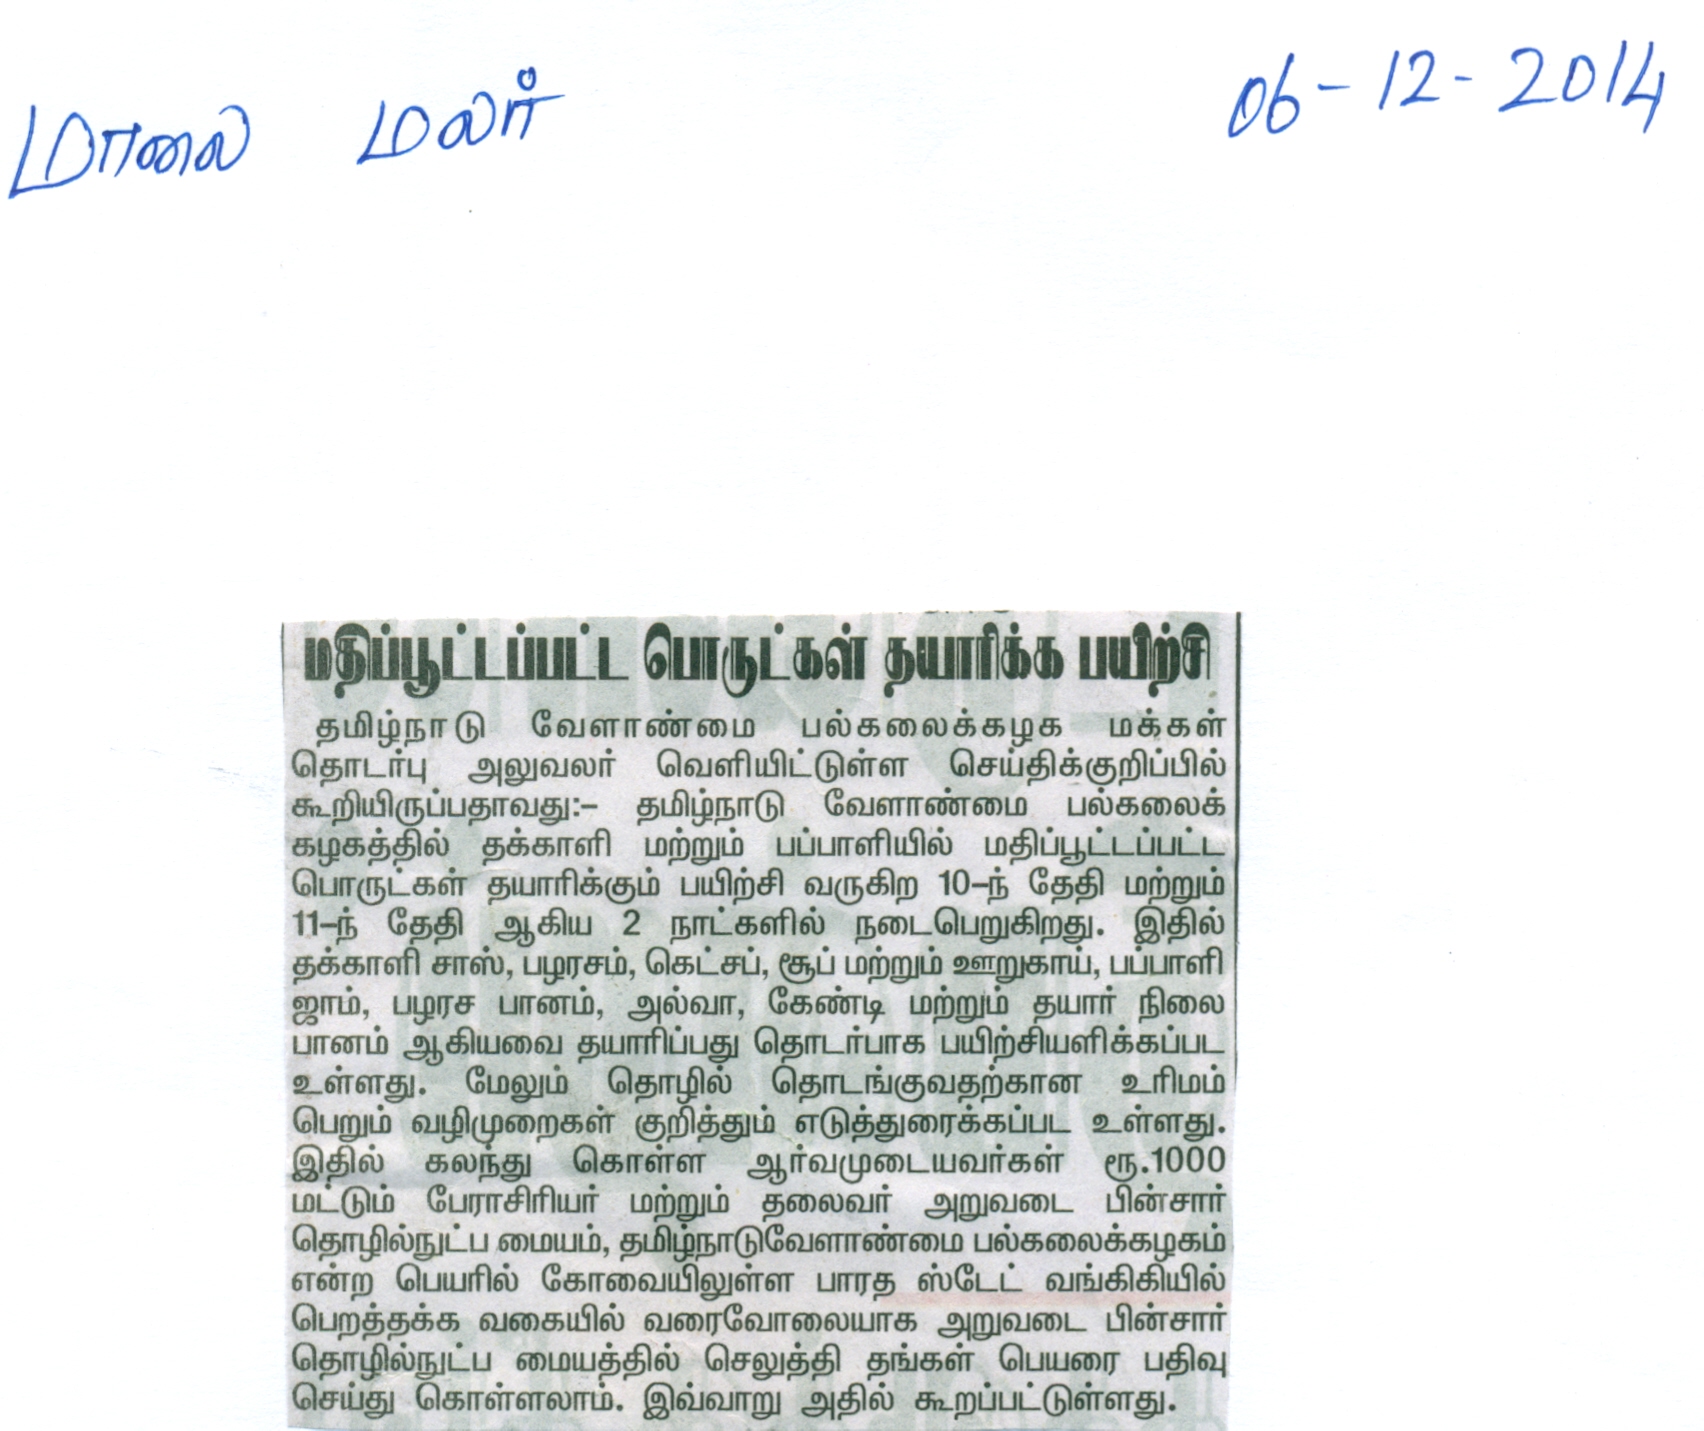 மாலை மலர்
06-12-2014
மதிப்பூட்டப்பட்ட பொருட்கள் தயாரிக்க பயிற்சி
தமிழ்நாடு வேளாண்மை பல்கலைக்கழக மக்கள்
தொடர்பு அலுவலர் வெளியிட்டுள்ள செய்திக்குறிப்பில்
கூறியிருப்பதாவது:– தமிழ்நாடு வேளாண்மை பல்கலைக்
கழகத்தில் தக்காளி மற்றும் பப்பாளியில் மதிப்பூட்டப்பட்ட
பொருட்கள் தயாரிக்கும் பயிற்சி வருகிற 10–ந் தேதி மற்றும்
11–ந் தேதி ஆகிய 2 நாட்களில் நடைபெறுகிறது. இதில்
தக்காளி சாஸ், பழரசம், கெட்சப், சூப் மற்றும் ஊறுகாய், பப்பாளி
ஜாம், பழரச பானம், அல்வா, கேண்டி மற்றும் தயார் நிலை
பானம் ஆகியவை தயாரிப்பது தொடர்பாக பயிற்சியளிக்கப்பட
உள்ளது. மேலும் தொழில் தொடங்குவதற்கான உரிமம்
பெறும் வழிமுறைகள் குறித்தும் எடுத்துரைக்கப்பட உள்ளது.
இதில் கலந்து கொள்ள ஆர்வமுடையவர்கள் ரூ.1000
மட்டும் பேராசிரியர் மற்றும் தலைவர் அறுவடை பின்சார்
தொழில்நுட்ப மையம், தமிழ்நாடுவேளாண்மை பல்கலைக்கழகம்
என்ற பெயரில் கோவையிலுள்ள பாரத ஸ்டேட் வங்கிகியில்
பெறத்தக்க வகையில் வரைவோலையாக அறுவடை பின்சார்
தொழில்நுட்ப மையத்தில் செலுத்தி தங்கள் பெயரை பதிவு
செய்து கொள்ளலாம். இவ்வாறு அதில் கூறப்பட்டுள்ளது.